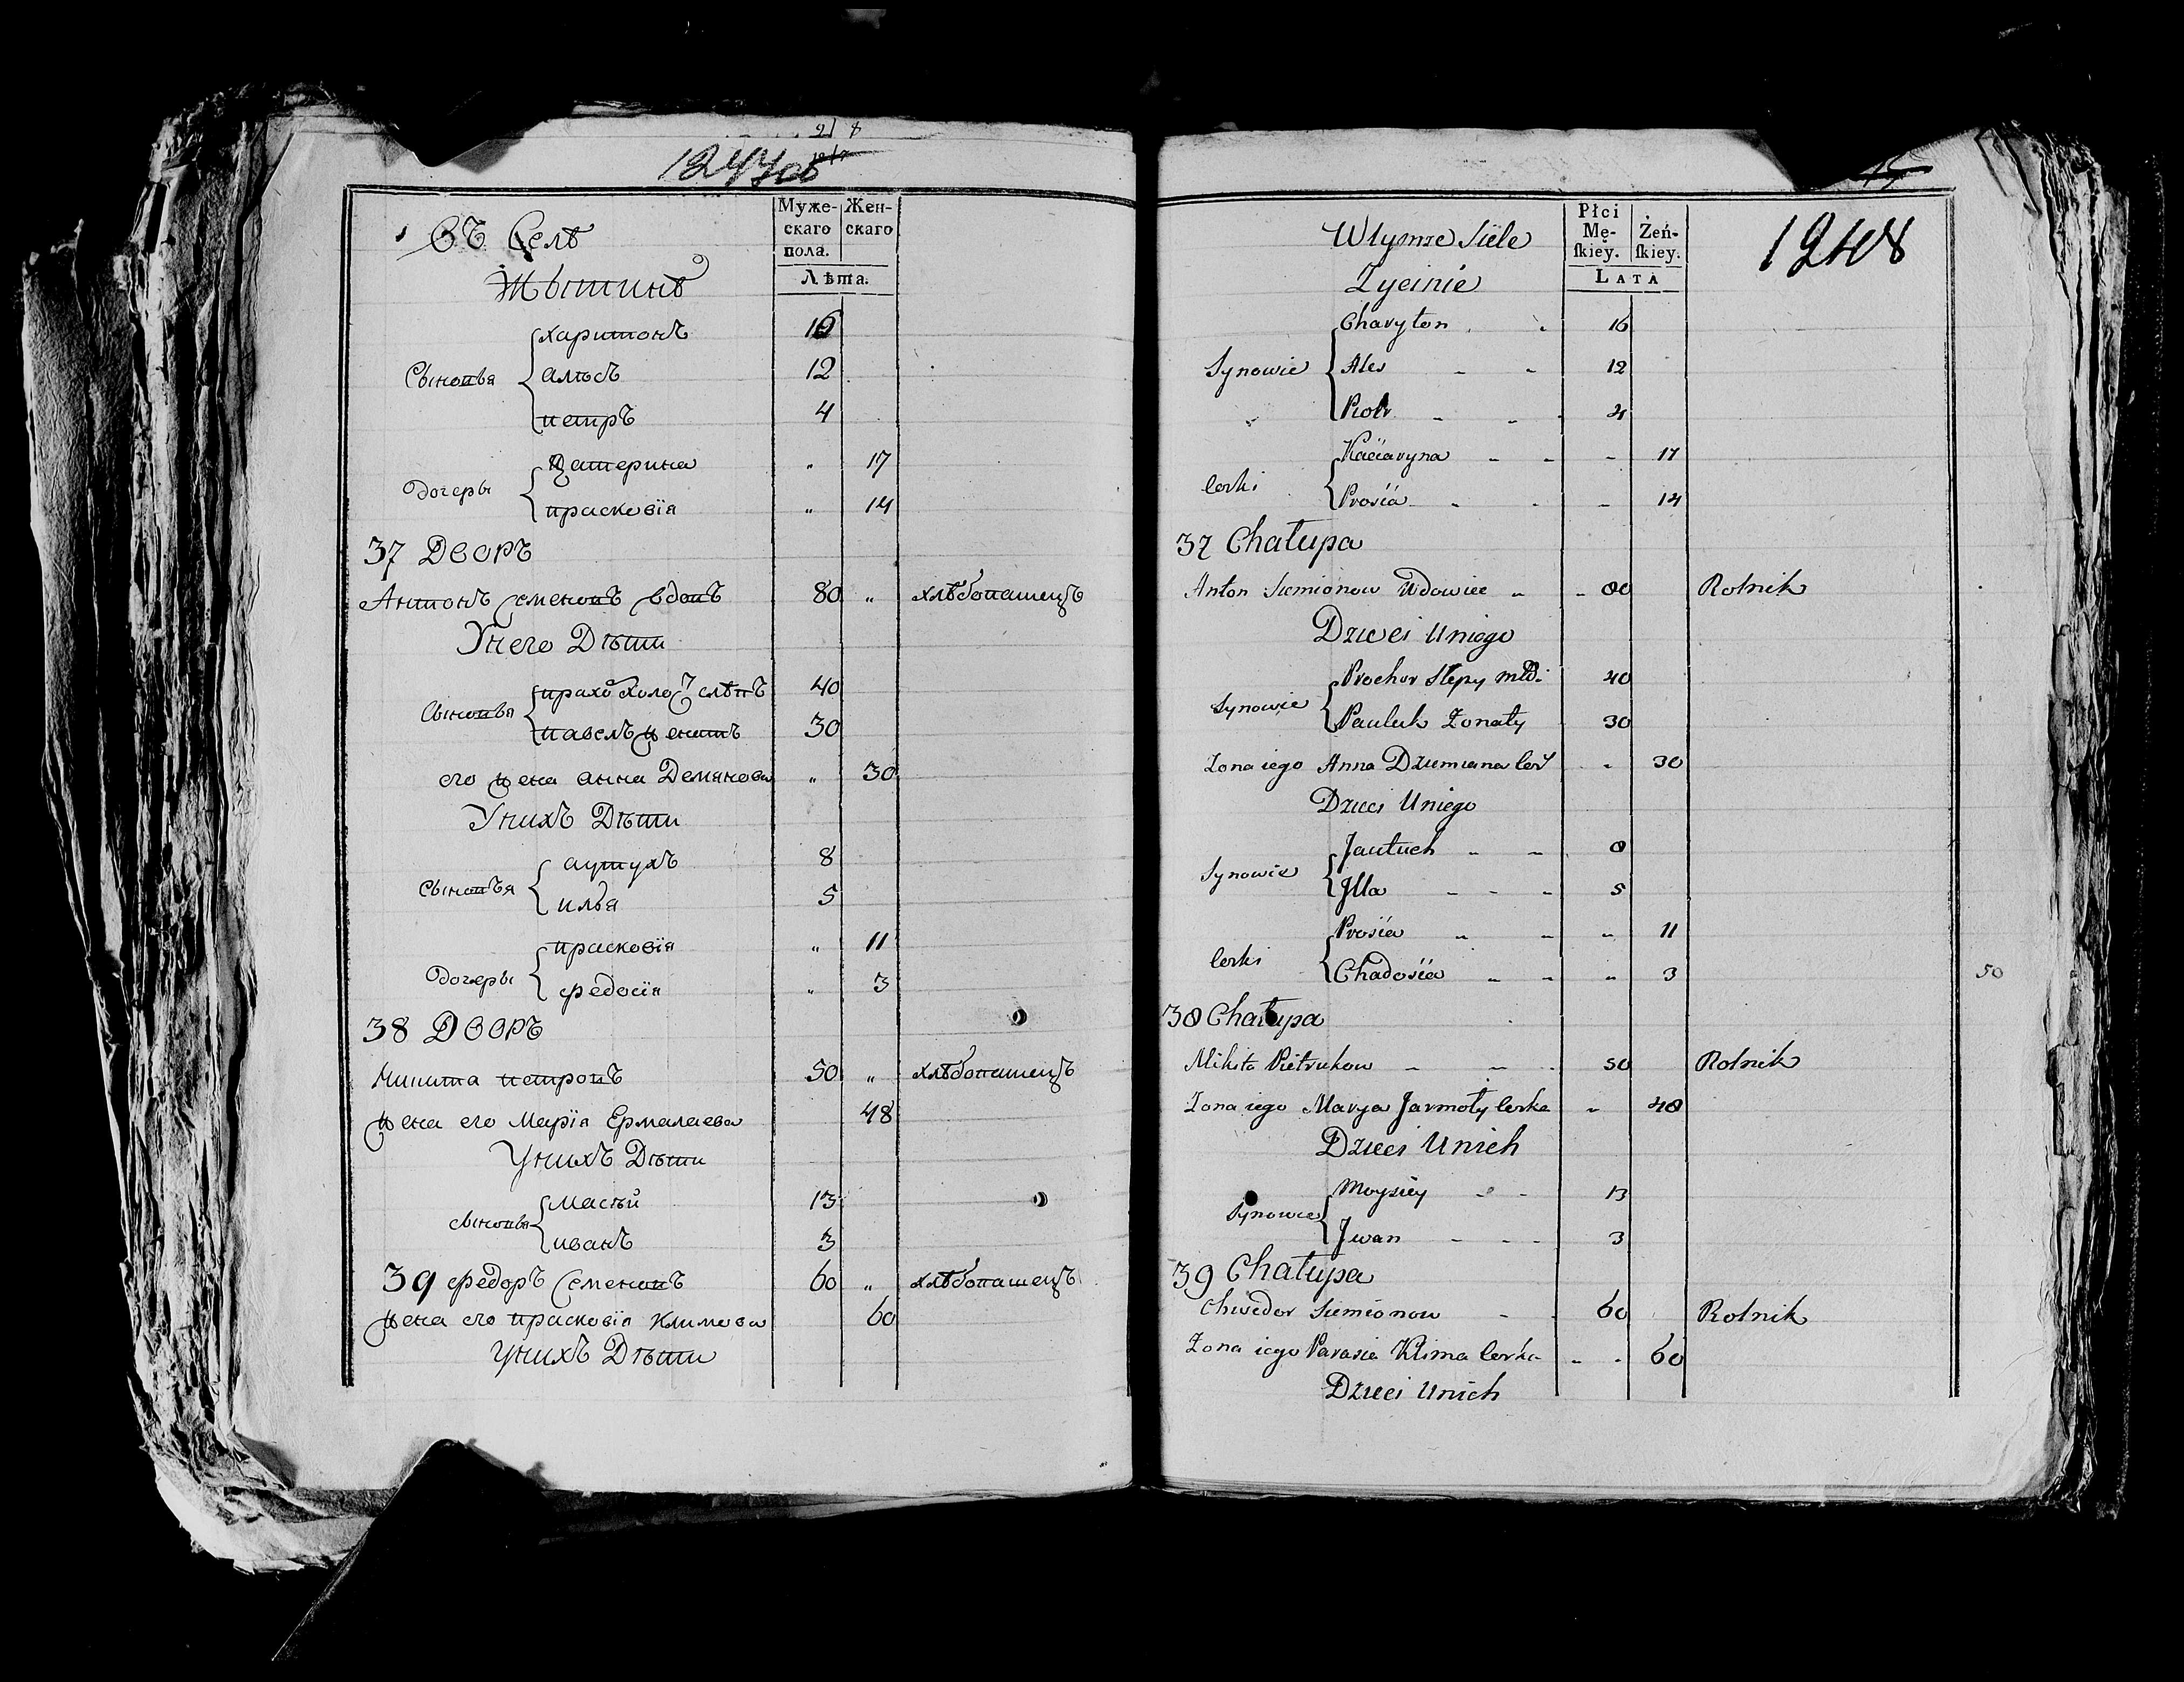 1247об
Въ Селѣ
Жытинѣ
Муже-
скаго
пола.
Жен-
скаго
Лѣта.
Сыновья
харитонъ 16
алѣсъ 12
петръ 4
Дочеры
Катерина „ 17
прасковія „ 14
37 Дворъ
Антонъ Семеновъ вдовъ 80 „ хлѣбопашецъ
У него Дѣти
Сыновья
прахо холос слѣпъ 40
павелъ женатъ 30
его жена анна Демянова „ 30
У нихъ Дѣти
Сыновъя
аутухъ 8
илья 5
Дочеры
прасковія „ 11
федосія „ 3
38 Дворъ
Микита петровъ 50 „ хлѣбопашецъ
жена его Марія Ермалаева 48
У нихъ Дѣти
сыновья
масѣй 13
иванъ 3
39 федоръ Семеновъ 60 „ хлѣбопашецъ
жена его прасковія Климова 60
У нихъ Дѣти
Wtymże Siele
Życinie
Płci
Mę-
ſkiey.
Żeń-
ſkiey.
LATA
1248
Synowie
Charyton 16
Ales 12
Piotr 4
Corki
Kaciaryna 17
Prosia 14
37 Chałupa
Anton Siemionow Wdowiec 80 Rolnik
Dzieci Uniego
Synowie
Prochor Slepy młd: 40
Pauluk Zonaty 30
Zona iego Anna Dziemiana Cor 30
Dzieci Uniego
Synowie
Jautuch 8
Jlla 5
Corki
Prosia 11
Chadosia 3
50
38 Chałupa
Mikita Pietrukow 50 Rolnik
Zona iego Marya Jarmoły Corka 48
Dzieci Unich
Synowie
Moysiey 13
Jwan 3
39 Chałupa
Chwedor Siemionow 60 Rolnik
Zona iego Parasia Klima Corka 60
Dzieci Unich